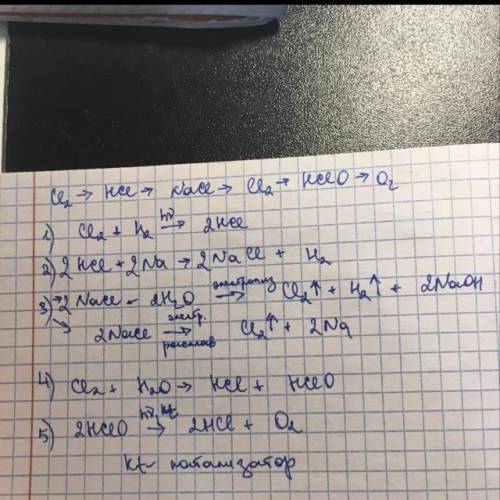 Cl₂ → HCl → NaCl → Cl₂ → HClO → O₂
1) Cl₂ + H₂ →hν 2HCl
2) 2HCl + 2Na → 2NaCl + H₂
3) → 2NaCl + 2H₂O →электролиз Cl₂↑ + H₂↑ + 2NaOH
↘ 2NaCl →электр. расплав Cl₂↑ + 2Na
4) Cl₂ + H₂O → HCl + HClO
5) 2HClO →hν, kt 2HCl + O₂
kt - катализатор